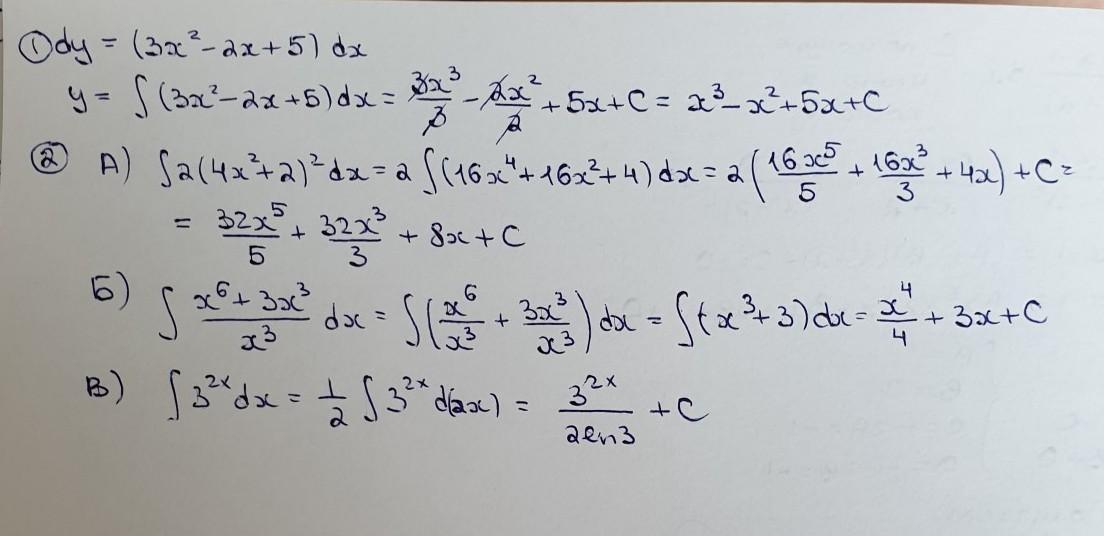 ① dy = (3x² - 2x + 5) dx
y = ∫ (3x² - 2x + 5) dx = 3x³/3 - 2x²/2 + 5x + C = x³ - x² + 5x + C
② А) ∫ 2(4x² + 2)² dx = 2 ∫ (16x⁴ + 16x² + 4) dx = 2 (16x⁵/5 + 16x³/3 + 4x) + C =
= 32x⁵/5 + 32x³/3 + 8x + C
Б) ∫ (x⁶ + 3x³)/x³ dx = ∫ (x⁶/x³ + 3x³/x³) dx = ∫ (x³ + 3) dx = x⁴/4 + 3x + C
В) ∫ 3²ˣ dx = 1/2 ∫ 3²ˣ d(2x) = 3²ˣ/(2 ln 3) + C